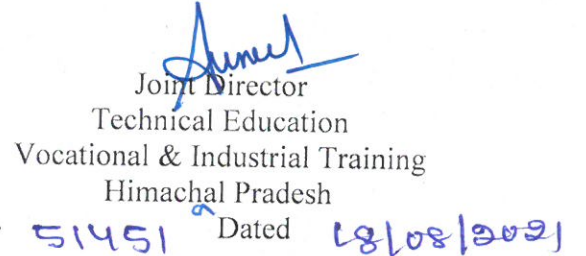 Joint Director
Technical Education
Vocational & Industrial Training
Himachal Pradesh
51451 Dated 18/08/2021